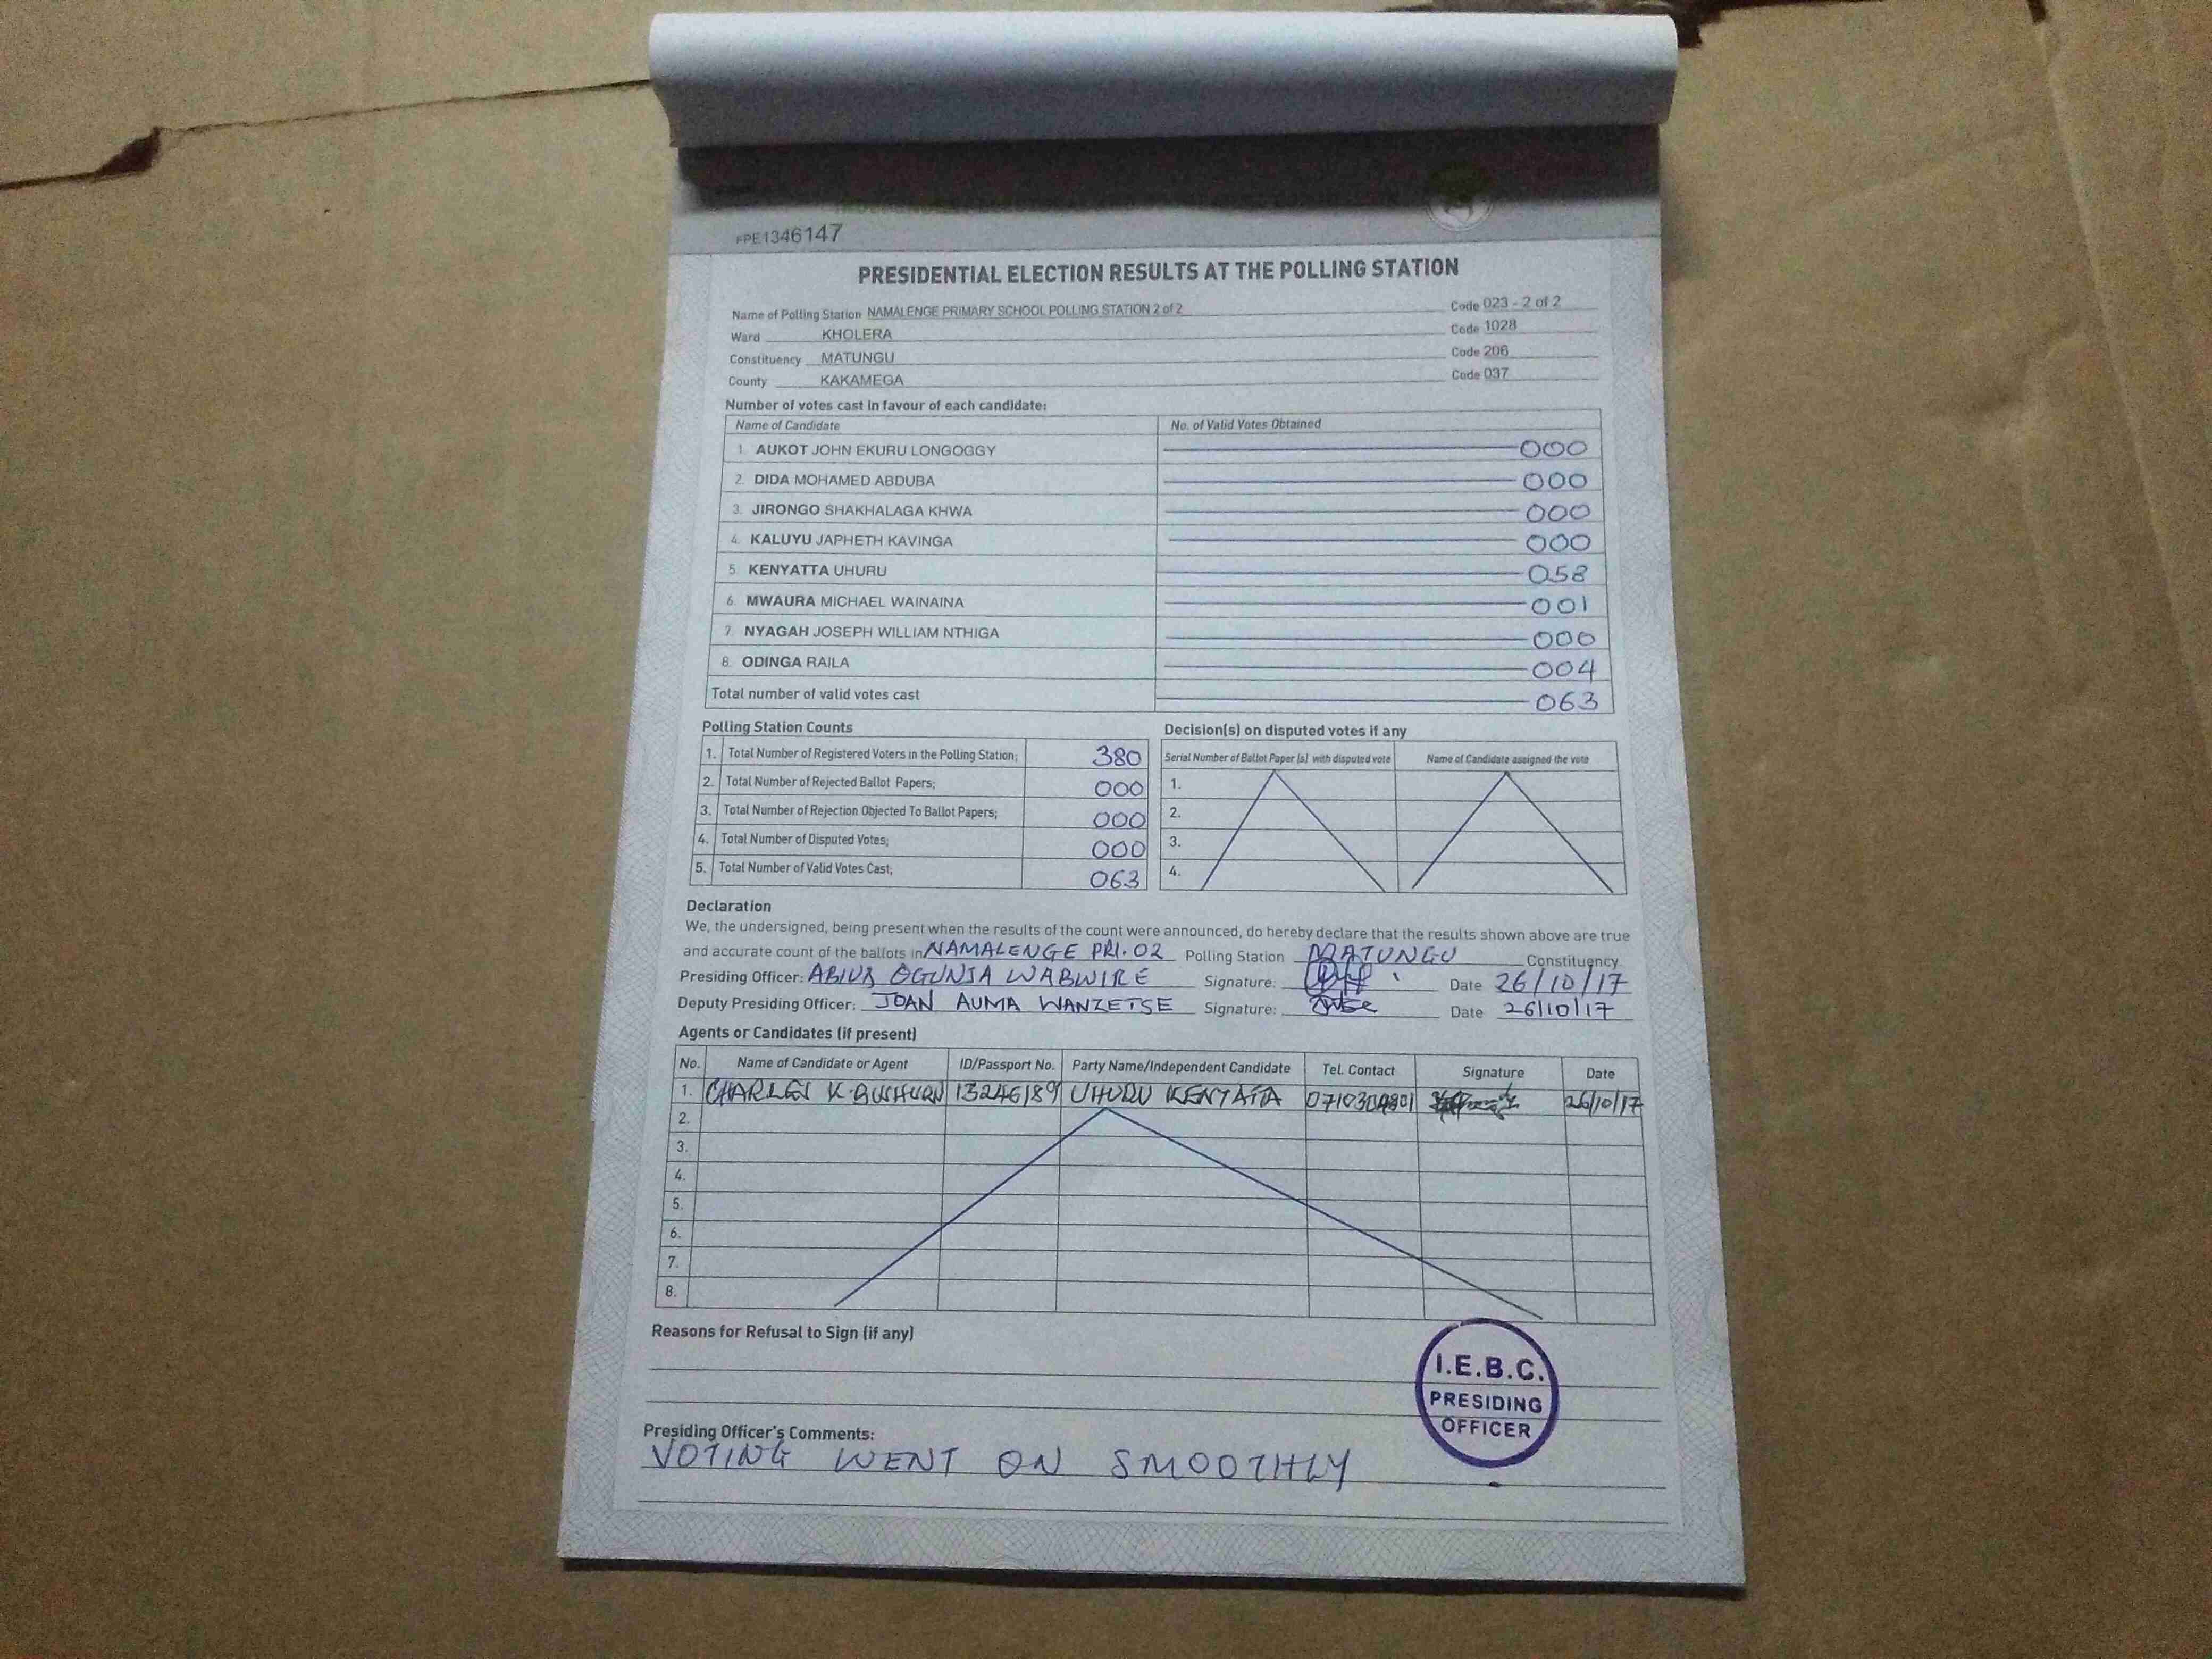 FPE1346147
PRESIDENTIAL ELECTION RESULTS AT THE POLLING STATION
Name of Polling Station NAMALENGE PRIMARY SCHOOL POLLING STATION 2 of 2 Code 023 - 2 of 2
Ward KHOLERA Code 1028
Constituency MATUNGU Code 206
County KAKAMEGA Code 037
Number of votes cast in favour of each candidate:
Name of Candidate No. of Valid Votes Obtained
1. AUKOT JOHN EKURU LONGOGGY 000
2. DIDA MOHAMED ABDUBA 000
3. JIRONGO SHAKHALAGA KHWA 000
4. KALUYU JAPHETH KAVINGA 000
5. KENYATTA UHURU 058
6. MWAURA MICHAEL WAINAINA 001
7. NYAGAH JOSEPH WILLIAM NTHIGA 000
8. ODINGA RAILA 004
Total number of valid votes cast 063
Polling Station Counts
1. Total Number of Registered Voters in the Polling Station; 380
2. Total Number of Rejected Ballot Papers; 000
3. Total Number of Rejection Objected To Ballot Papers; 000
4. Total Number of Disputed Votes; 000
5. Total Number of Valid Votes Cast; 063
Decision(s) on disputed votes if any
Serial Number of Ballot Paper (s) with disputed vote Name of Candidate assigned the vote
1.
2.
3.
4.
Declaration
We, the undersigned, being present when the results of the count were announced, do hereby declare that the results shown above are true
and accurate count of the ballots in NAMALENGE PRI. 02 Polling Station MATUNGU Constituency
Presiding Officer: OGUNJA WABWIRE Signature: Date 26/10/17
Deputy Presiding Officer: JOAN AUMA WANZETSE Signature: Date 26/10/17
Agents or Candidates (if present)
No. Name of Candidate or Agent ID/Passport No. Party Name/Independent Candidate Tel. Contact Signature Date
1. CHARLES K. 13246189 UHURU KENYATA 26/10/17
2.
3.
4.
5.
6.
7.
8.
Reasons for Refusal to Sign (if any)
I.E.B.C.
PRESIDING
OFFICER
Presiding Officer's Comments:
VOTING WENT ON SMOOTHLY